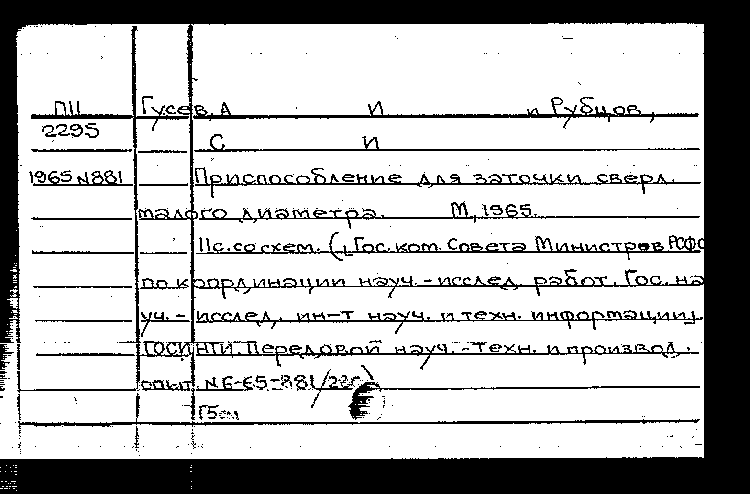 ПII Гусев, А И и Рубцов,
2295 С И
1965 N881 Приспособление для заточки сверл
малого диаметра. М, 1965.
11с. со схем. (Гос. ком. Совета Министров РСФС
по координации науч.-исслед. работ. Гос. на
уч.-исслед. ин-т науч. и техн. информации.
ГОСИНТИ. Передовой науч.-техн. и производ.
опыт. N 6-65-881/